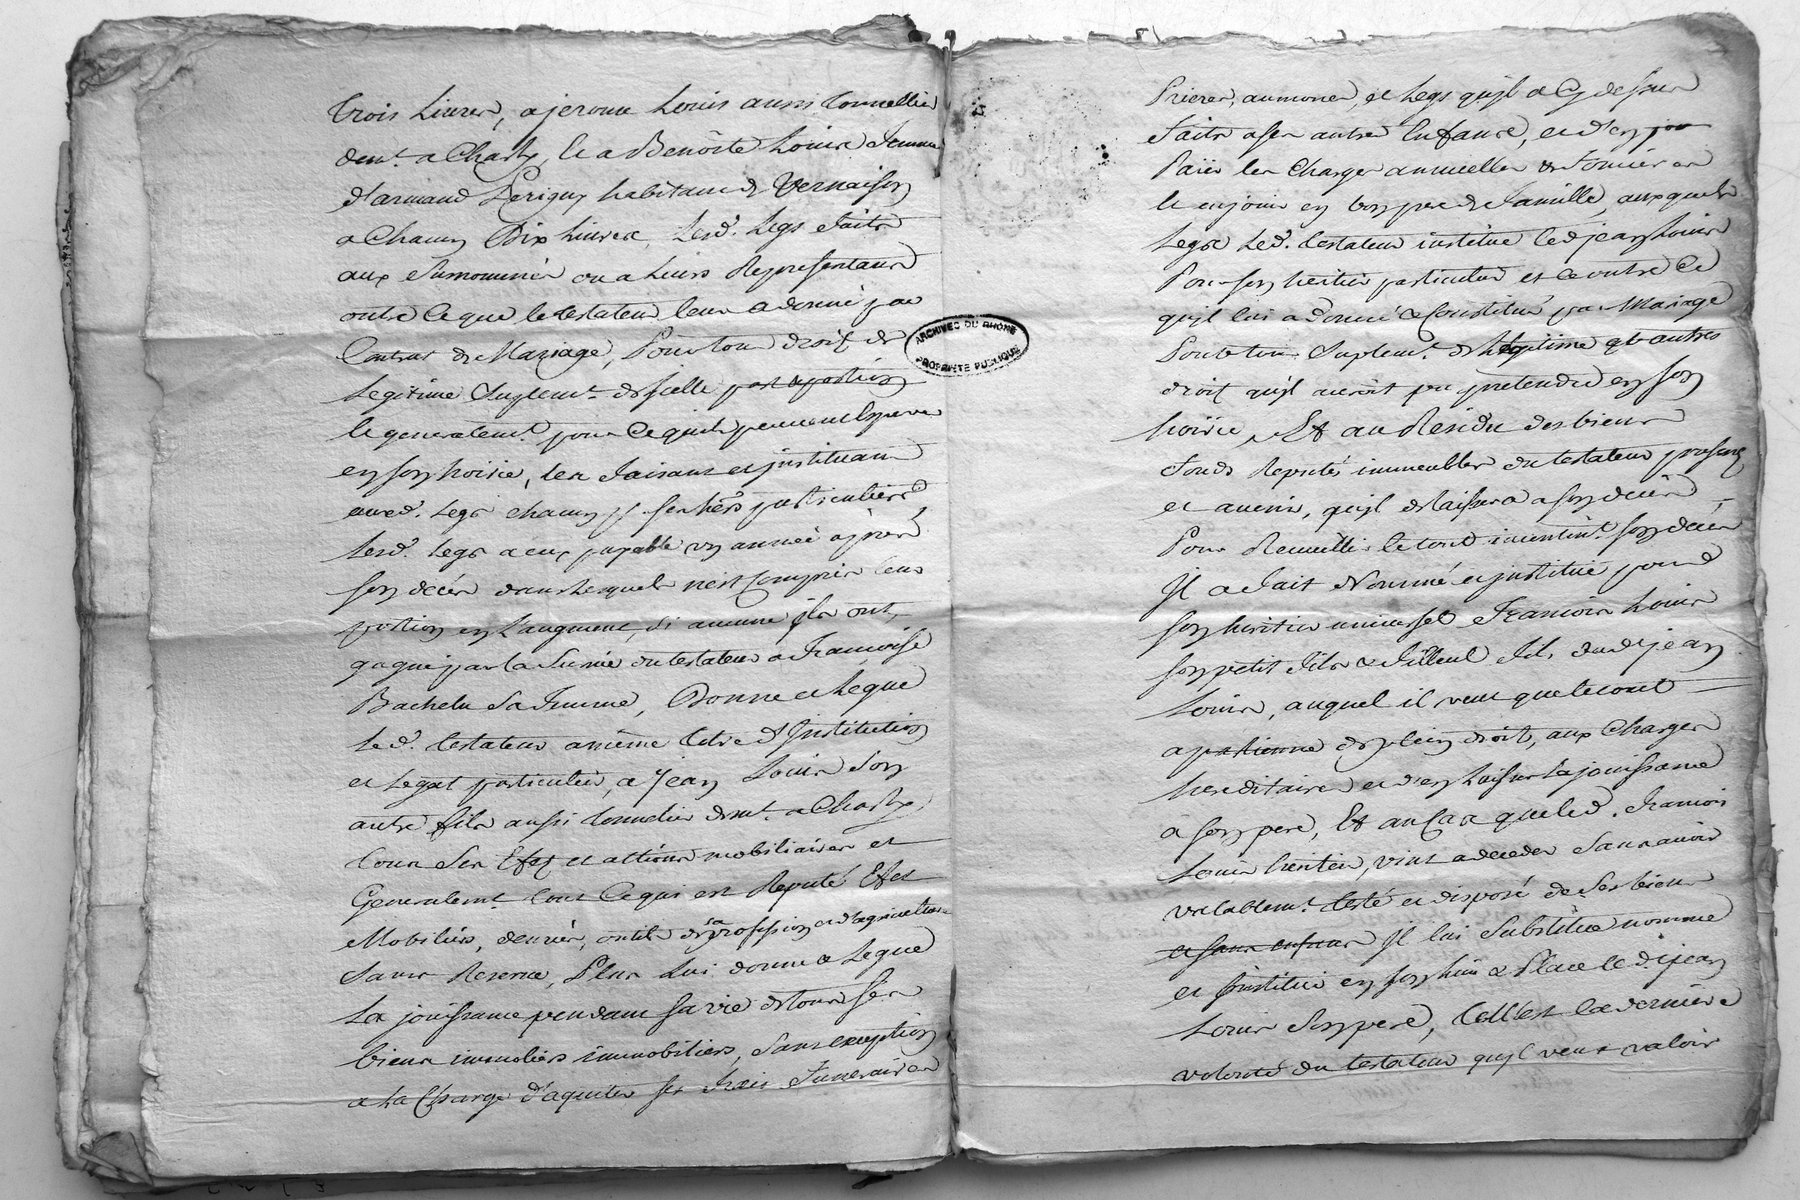 trois Livres, a jerome Louis aussi tonnellier
demt. a Charly, et a Benoite Louis femme
d'armand Perigny habitans de Vernaison
a Chacun Dix Livres, Lesd. Legs faits
aux Surnommés ou a leurs Representans
outre ce que le testateur leur a donné par
Contrat de Mariage, Pour tous droits de
Legitime Suplemt. d'icelle part & portion
et generalemt. pour ce quils peuvent esperer
en son hoirie, les faisant et instituant
aud. Legs chacun ses hers. particuliers
Lesd. Legs a eux payable un année après
son decès dans lesquels n'est compris leur
portion en l'augment, si aucune ils ont,
gagné par la Survie du testateur a francoise
Bachelu Sa femme, Donne et Legue
Led. testateur a même titre d'Institution
et Legat particulier, a Jean Louis Son
autre fils aussi tonnelier demt. a Charly,
tous Ses Efets et actions mobiliaires et
Generalemt. tout Ce qui est Reputé Efets
Mobiliers, denrées, outils de sa profession et d'agriculture
Sans Reserve, Plus Lui donne & Legue
La jouissance pendant sa vie de tous ses
biens immeubles immobiliers, Sans exception
a la Charge d'aquiter ses frais funeraires
ARCHIVES DU RHÔNE
PROPRIÉTÉ PUBLIQUE
Prieres, aumones, et Legs qu'il a Cy dessus
faits a ses autres Enfans, et d'en
Païer les Charges annuelles & foncieres
et en jouir en bon pere de famille, auxquels
Legs Led. testateur institue led jean Louis
Pour son heritier particulier et ce outre Ce
qu'il lui a donné & Constitué par Mariage
Pour tous Suplemt. de Legitime et autres
droits qu'il auroit pu pretendre en son
hoirie, Et au Residu des biens
fonds Reputés immeubles du testateur presens
et avenir, qu'il delaissera a son decès
Pour Recueillir le tout incontint. son decès
Il a fait Nommé et institué pour
son heritier universel Francois Louis
son petit fils & filleul fils dud jean
Louis, auquel il veut que le tout
apartienne de plein droit, aux Charges
hereditaires et d'en laisser la jouissance
à son pere, Et au Cas que led. francois
Louis heritier, vint a deceder Sans avoir
valablemt. testé et disposé de Ses biens
et sans enfans Il lui Substitue nomme
et institue en son lieu & Place led. jean
Louis Son pere, telle est la derniere
volonté du testateur qu'il veut valoir